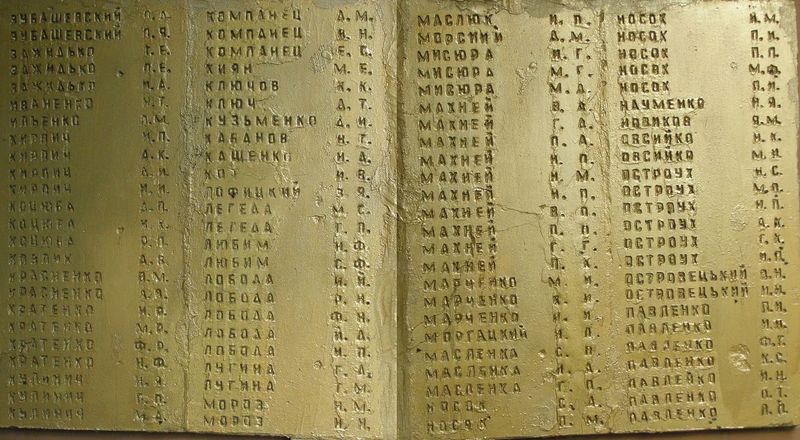 ЗУБАШЕВСКИЙ
ЗУБАШЕВСКИЙ П.Я.
ЗАЖИДЬКО Г.Е.
ЗАЖИДЬКО П.Е.
ЗАЖИДЬКО И.А.
ИВАНЕНКО Н.Т.
ИЛЬЕНКО П.М.
КИРПИЧ И.П.
КИРПИЧ А.К.
КИРПИЧ
КИРПИЧ И.Н.
КОЦЮБА Д.П.
КОЦЮБА И.Х.
КОЦЮБА
КОВЛИК А.В.
КРАСНЕНКО В.М.
КРАСНЕНКО А.Я.
КРАТЕНКО И.Р.
КРАТЕНКО М.Р.
КРАТЕНКО Ф.Р.
КРАТЕНКО Н.Ф.
КУЛИНИЧ Н.Я.
КУЛИНИЧ М.А.
КОМПАНЕЦ А.М.
КОМПАНЕЦ В.Н.
КОМПАНЕЦ Е.С.
КИЯН М.Е.
КЛЮЧОВ К.К.
КЛЮЧ А.Т.
КУЗЬМЕНКО Д.И.
КАБАНОВ Н.Г.
КАЩЕНКО И.Д.
КОТ И.В.
ЛОФИЦКИЙ З.Я.
ЛЕГЕДА М.С.
ЛЕГЕДА Г.П.
ЛЮБИМ Н.Ф.
ЛЮБИМ С.Ф.
ЛОБОДА И.Н.
ЛОБОДА Р.Н.
ЛОБОДА Ф.Н.
ЛОБОДА И.Д.
ЛОБОДА И.П.
ЛУГИНА Г.Д.
ЛУГИНА Г.М.
МОРОЗ Н.М.
МОРОЗ И.Н.
МАСЛЮК И.П.
МОРСКИЙ А.М.
МИСЮРА И.Г.
МИСЮРА М.Г.
МИСЮРА М.Д.
МАХНЕЙ В.А.
МАХНЕЙ Г.Д.
МАХНЕЙ П.А.
МАХНЕЙ И.П.
МАХНЕЙ Н.М.
МАХНЕЙ И.П.
МАХНЕЙ В.П.
МАХНЕЙ П.П.
МАХНЕЙ Г.Г.
МАХНЕЙ П.К.
МАРЧЕНКО М.И.
МАРЧЕНКО К.И.
МАРЧЕНКО И.И.
МОРГАЦКИЙ И.П.
МАСЛЕНКА С.П.
МАСЛЕНКА И.А.
МАСЛЕНКА Г.П.
НОСОК С.Д.
НОСОК П.М.
НОСОК И.М.
НОСОК И.П.
НОСОК П.П.
НОСОК М.Ф.
НОСОК П.П.
НАУМЕНКО Н.Я.
НОВИКОВ Я.М.
ОВСИЙКО Н.К.
ОВСИЙКО М.И.
ОСТРОУХ Н.С.
ОСТРОУХ М.П.
ОСТРОУХ И.П.
ОСТРОУХ А.К.
ОСТРОУХ Г.К.
ОСТРОУХ И.П.
ОСТРОВЕЦЬКИЙ В.Н.
ОСТРОВЕЦЬКИЙ И.Н.
ПАВЛЕНКО П.И.
ПАВЛЕНКО И.И.
ПАВЛЕНКО Ф.Г.
ПАВЛЕНКО К.С.
ПАВЛЕНКО И.Н.
ПАВЛЕНКО П.Т.
ПАВЛЕНКО П.П.